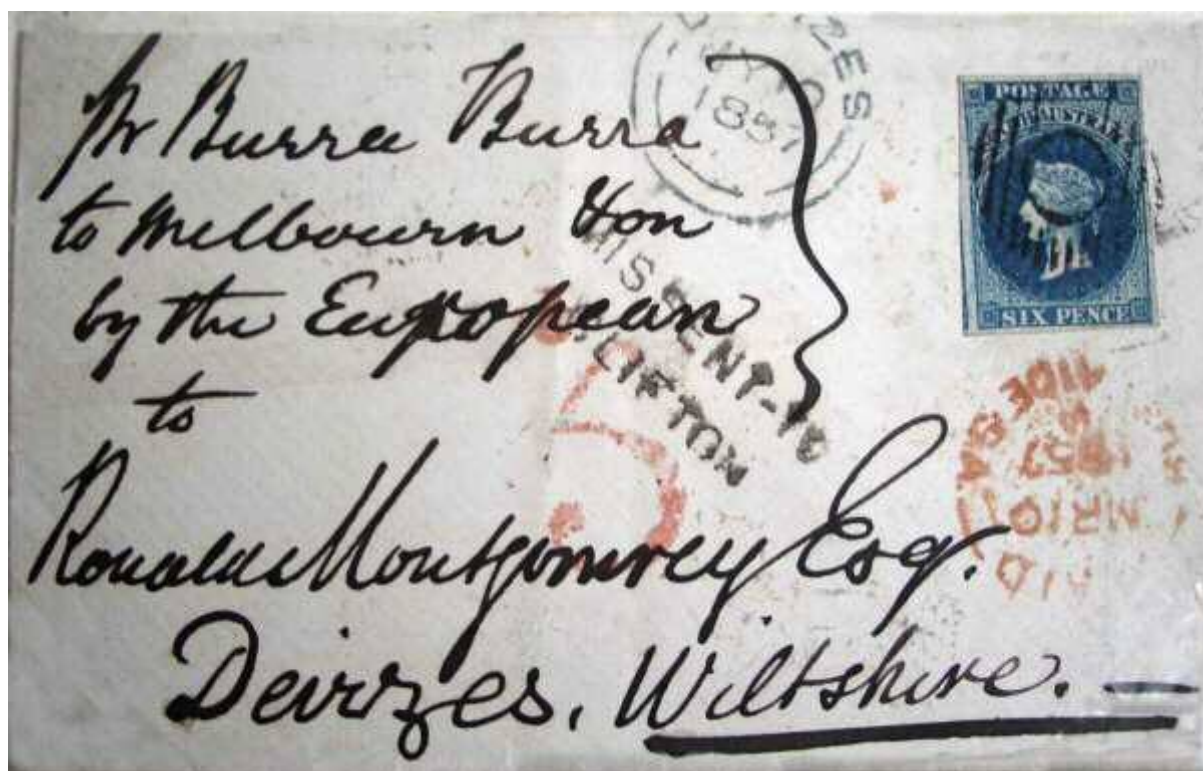 pr Burra Burra
to Melbourn &on
by the European
to
Ronald Montgomrey Esq.
Devizes, Wiltshire.
ZES
1857
POSTAGE
SIX PENCE
MISSENT-TO
CLIFTON
6
1857
MR 10